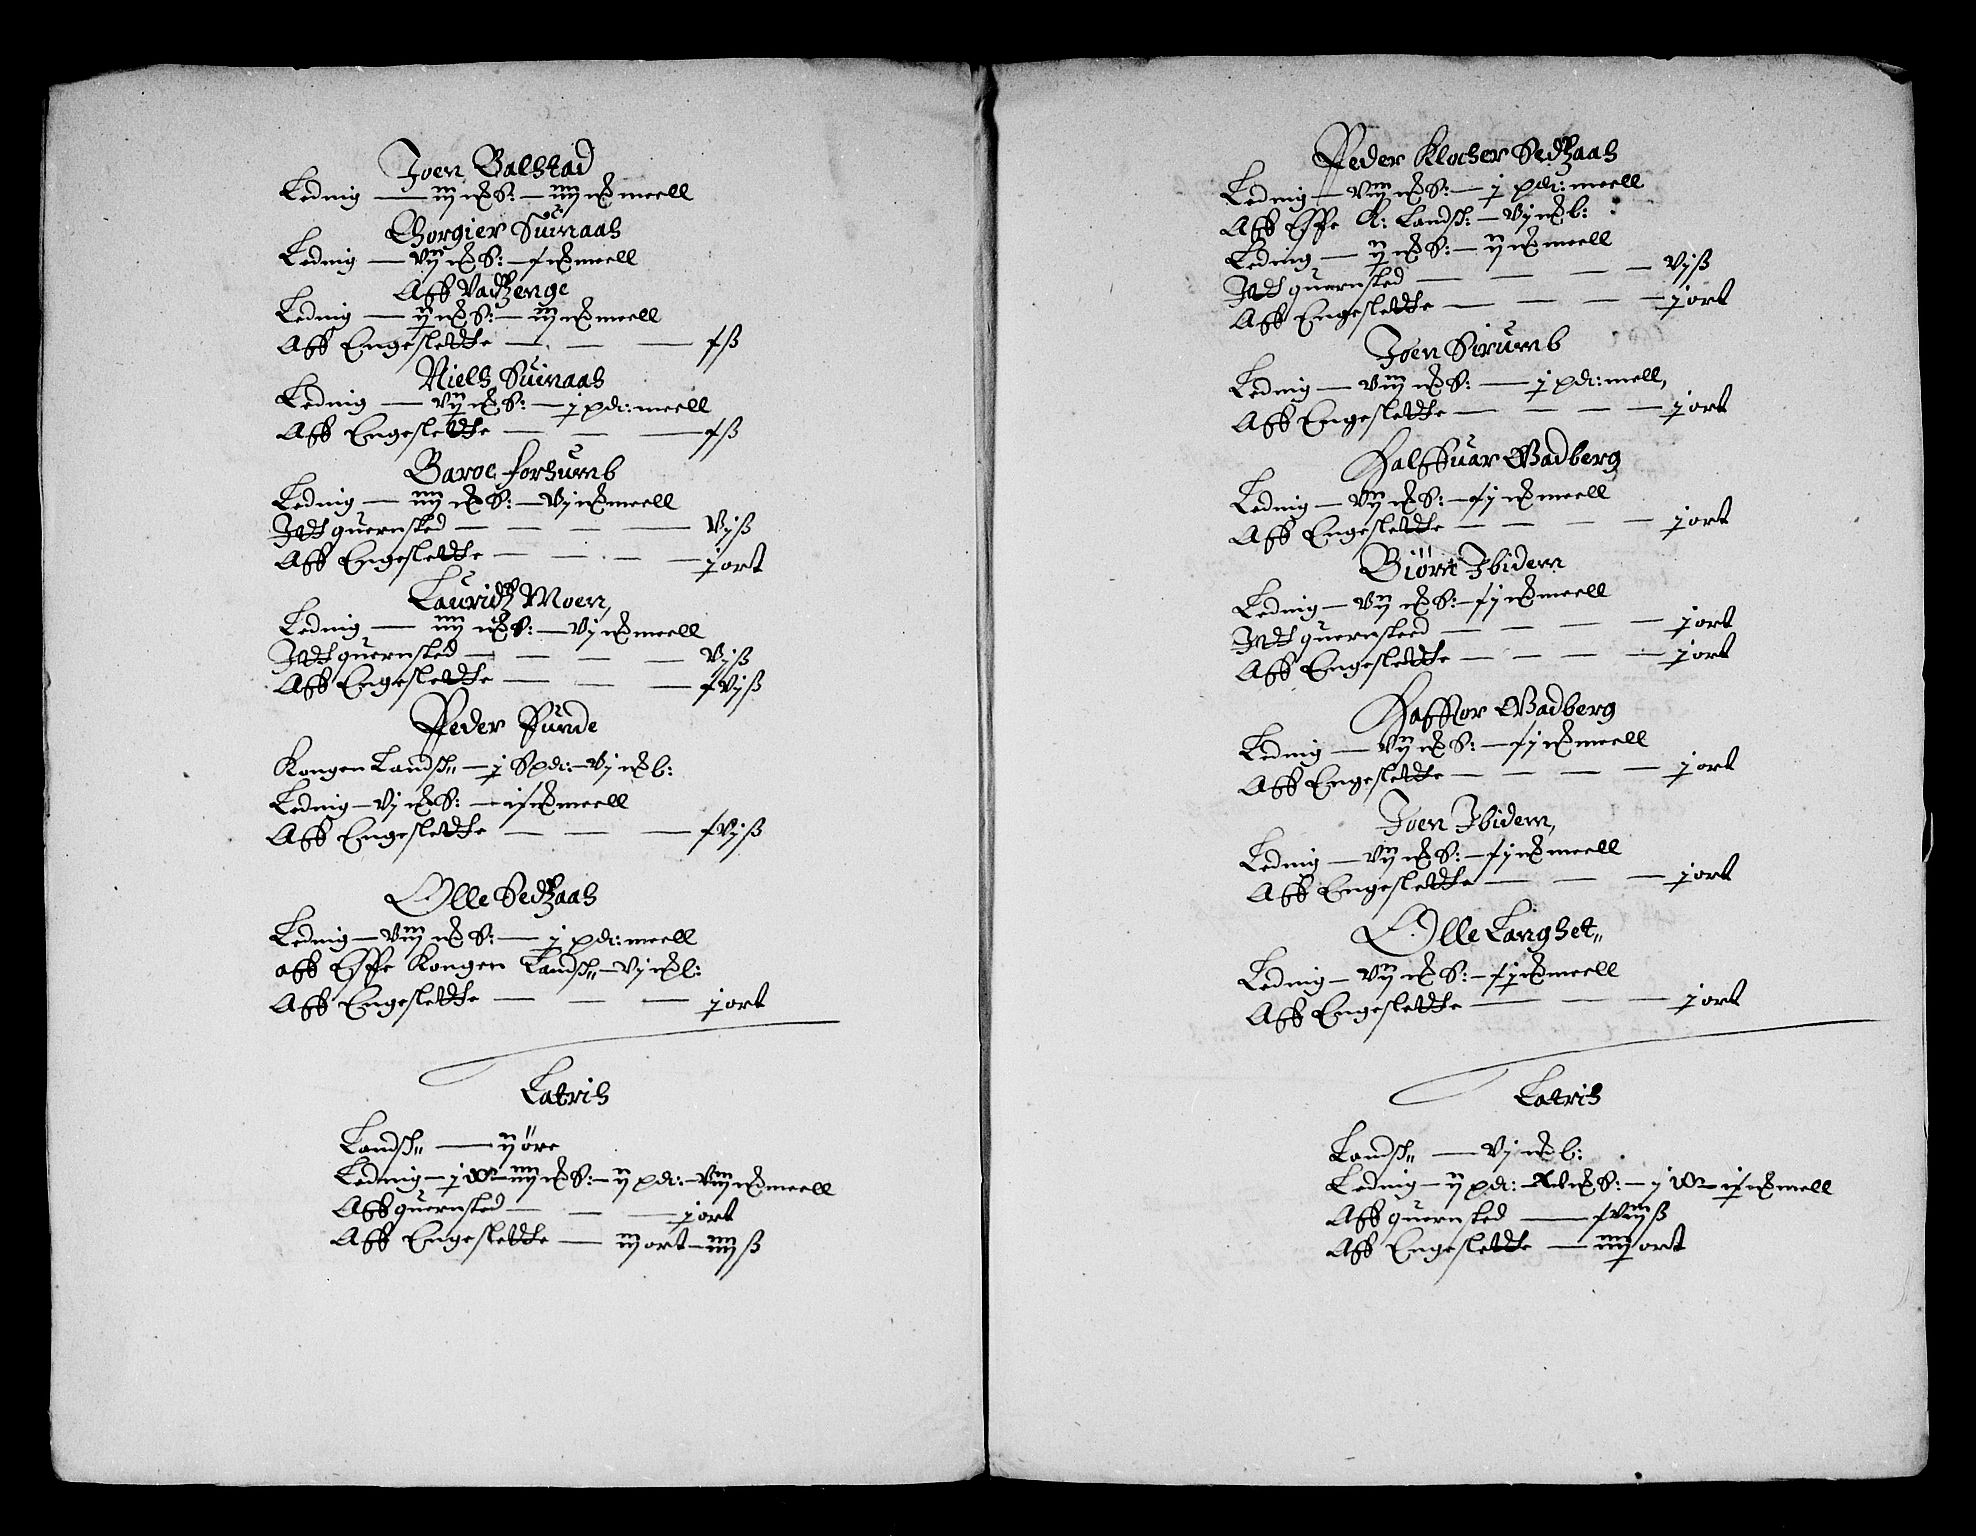 Joen Balstad
Lednig — iij ℔ S: — iiij ℔ meell
Borgier Suinaas
Lednig — viij ℔ S: — f ℔ meell
Aff Vadzenge
Lednig — ij ℔ S: — iij ℔ meell
Aff Engeslette — — — fß
Niels Suinaas
Lednig — viij ℔ S: — j pd: meell
Aff Engeslette — — — fß
Baroe Forsumb
Lednig — iiij ℔ S: — vj ℔ meell
Jtt quernsted — — — — vjß
Aff Engeslette — — — — j ort
Lauridz Moen,
Lednig — iiij ℔ S: — vj ℔ meell
Jtt quernsted — — — — vjß
Aff Engeslette — — — fvjß
Peder Funde
Kongen Landsk: — j Spd: — vj ℔ l:
Lednig — vj ℔ S: — if ℔ meell
Aff Engeslette — — — fvjß
Olle Sedzaas
Lednig — viij ℔ S: — j pd: meell
aff Øffe Kongen Landsk: — vj ℔ l:
Aff Engeslette — — — j ort
Latris
Landsk: — ij öre
Lednig — j W iiij ℔ S: — ij pd: — viij ℔ meell
Aff quernsted — — — j ort
Aff Engeslette — iij ort — iiij ß
Peder Klocker Sedzaas
Lednig — viij ℔ S: — j pd: meell
Aff Øffe K: Landsk: — vj ℔ l:
Lednig — ij ℔ S: — ij ℔ meell
Jtt quernsted — — — — vjß
Aff Engeslette — — — — j ort
Joen Sirumb
Lednig — viij ℔ S: — j pd: mell,
Aff Engeslette — — — — j ort
Halffuar Vadberg
Lednig — vij ℔ S: — fj ℔ meell
Aff Engeslette — — — — j ort
Biörn Ibidem
Lednig — vij ℔ S: — fj ℔ meell
Jtt quernsteed — — — — j ort
Aff Engeslette — — — — j ort
Hafftor Vadberg
Lednig — vij ℔ S: — fj ℔ meell
Aff Engeslette — — — — j ort
Joen Ibidem,
Lednig — vij ℔ S: — fj ℔ meell
Aff Engeslette — — — j ort
Olle Langset
Lednig — vij ℔ S: — fj ℔ meell
Aff Engeslette — — — j ort
Latris
Landsk: — vj ℔ l:
Lednig — ij pd: — ℔ S: — j W if ℔ mell
Aff quernsted — fviij ß
Aff Engeslette — iiij ort